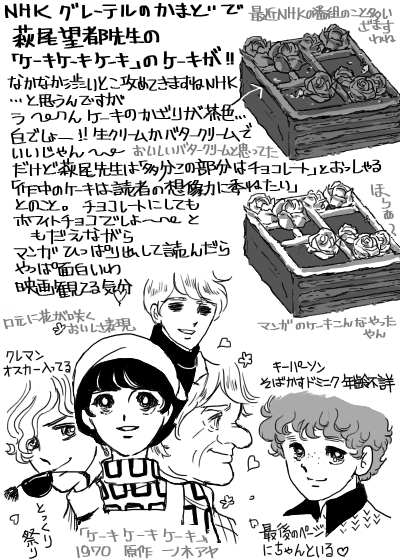 NHK グレーテルのかまどで
萩尾望都先生の
「ケーキケーキケーキ」のケーキが!!
なかなか渋いとこ攻めてきますねNHK
…と思うんですが
う〜〜ん ケーキのかざりが茶色…
白でしょー!! 生クリームかバタークリームで
いいじゃん〜 おいしいバタークリームと思ってた
だけど萩尾先生は「多分この部分はチョコレート」とおっしゃる
「作中のケーキは読者の想像力に委ねたい」
とのこと。 チョコレートにしても
ホワイトチョコでしょよ〜〜 と
もだえながら
マンガひっぱり出して読んだら
やっぱ面白いわ
映画観てる気分
最近NHKの番組のこと多い
ざます
わね
ほらぁ〜
マンガのケーキこんなやった
やん
口元に花が咲く
おいしさ表現
クレマン
オスカー入ってる
とっくり
祭り
キーパーソン
そばかすドミニク 年齢不詳
最後のページ
にちゃんといる♡
「ケーキ ケーキ ケーキ」
1970 原作 一ノ木アヤ